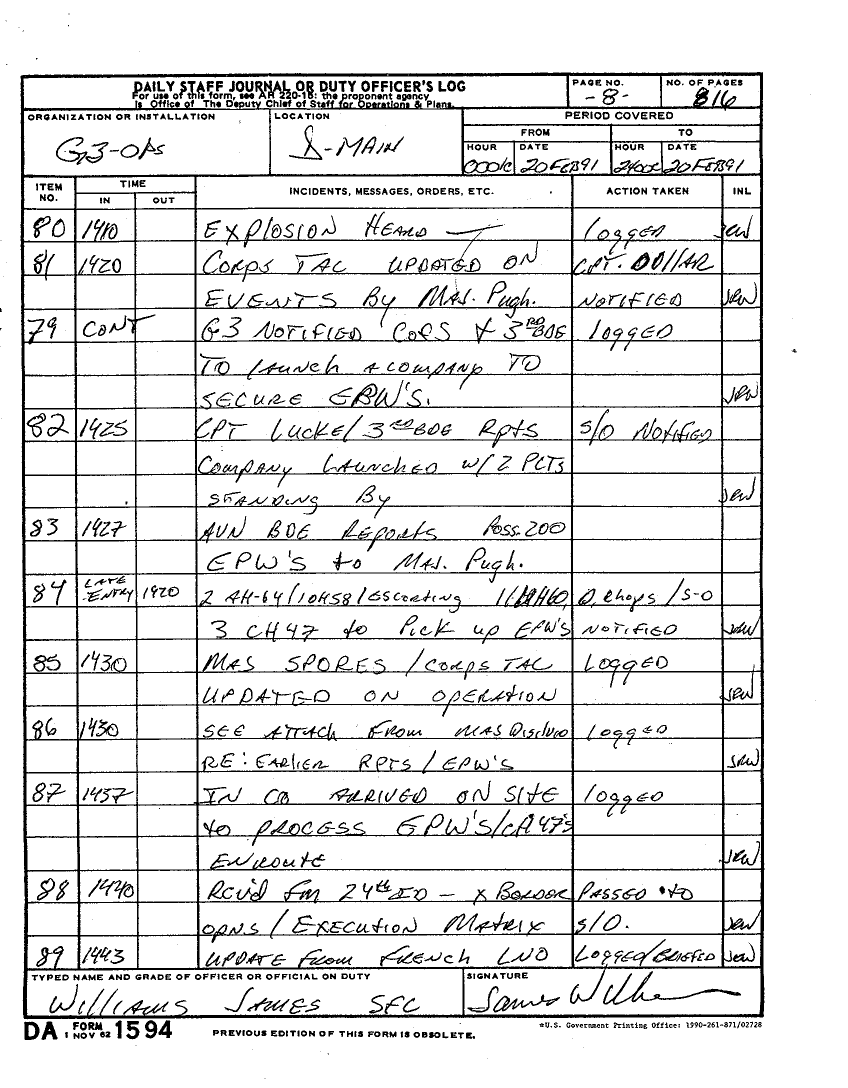 DAILY STAFF JOURNAL OR DUTY OFFICER'S LOG
For use of this form, see AR 220-15: the proponent agency
is Office of The Deputy Chief of Staff for Operations & Plans.
PAGE NO.
-8-
NO. OF PAGES
816
ORGANIZATION OR INSTALLATION
G3-OPS
LOCATION
D-MAIN
PERIOD COVERED
FROM TO
HOUR DATE HOUR DATE
0001C 20FEB91 2400C 20FEB91
ITEM NO. TIME IN OUT INCIDENTS, MESSAGES, ORDERS, ETC. ACTION TAKEN INL
80 1410 EXPLOSION HEARD — logged JRW
81 1420 CORPS TAC UPDATED ON CPT. DOllAR
EVENTS By MAJ. Pugh. NOTIFIED JRW
79 CONT G3 NOTIFIED COPS & 3RD BDE logged
TO launch A company TO
SECURE EPW'S. JRW
82 1425 CPT LUCKE/3RD BDE Rpts S/O NOTIFIED
Company LAUNCHED W/2 PLTS
STANDING By JRW
83 1427 AVN BDE REPORTS Poss. 200
EPW'S to MAJ. Pugh.
84 LATE ENTRY 1420 2 AH-64/1OH58/Escorting UH60, D.Chops/S-O
3 CH47 to Pick up EPW'S NOTIFIED JRW
85 1430 MAJ SPORES/CORPS TAC LOGGED
UPDATED ON OPERATION JRW
86 1430 SEE ATTACH FROM MAJ logged
RE: EARLIER RPTS/EPW'S JRW
87 1437 IN CO ARRIVED ON SITE logged
to PROCESS EPW'S/CH47's
ENROUTE JRW
88 1440 RCV'd fm 24th ID - X BORDOR PASSED to
OPNS/EXECUTION MATRIX S/O. JRW
89 1443 UPDATE FROM FRENCH LNO LOGGED/BRIEFED JRW
TYPED NAME AND GRADE OF OFFICER OR OFFICIAL ON DUTY
WILLIAMS JAMES SFC
SIGNATURE
James
DA FORM 1 NOV 62 1594
PREVIOUS EDITION OF THIS FORM IS OBSOLETE.
*U.S. Government Printing Office: 1990-261-871/02728